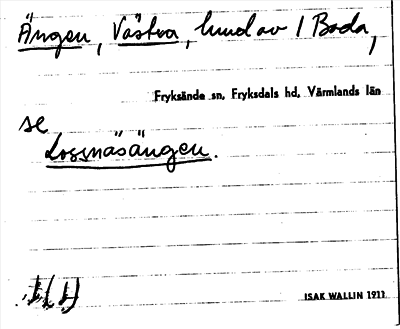 Ängen, Västra, hmd av 1 Bada,
Fryksände sn, Fryksdals hd, Värmlands län
se
Lossnäsängen.
ISAK WALLIN 1911